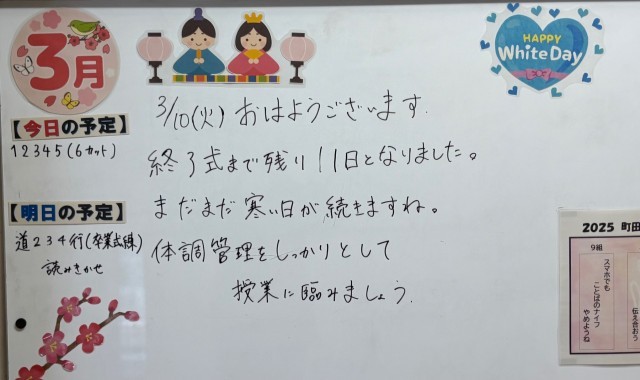 3月
HAPPY
White Day
3/10(火) おはようございます.
終了式まで残り11日となりました。
まだまだ寒い日が続きますね。
体調管理をしっかりとして
授業に臨みましょう.
【今日の予定】
12345(6カット)
【明日の予定】
道234行(卒業式練)
読みきかせ
2025 町田
9組
スマホでも
ことばのナイフ
やめようね
伝え合おう